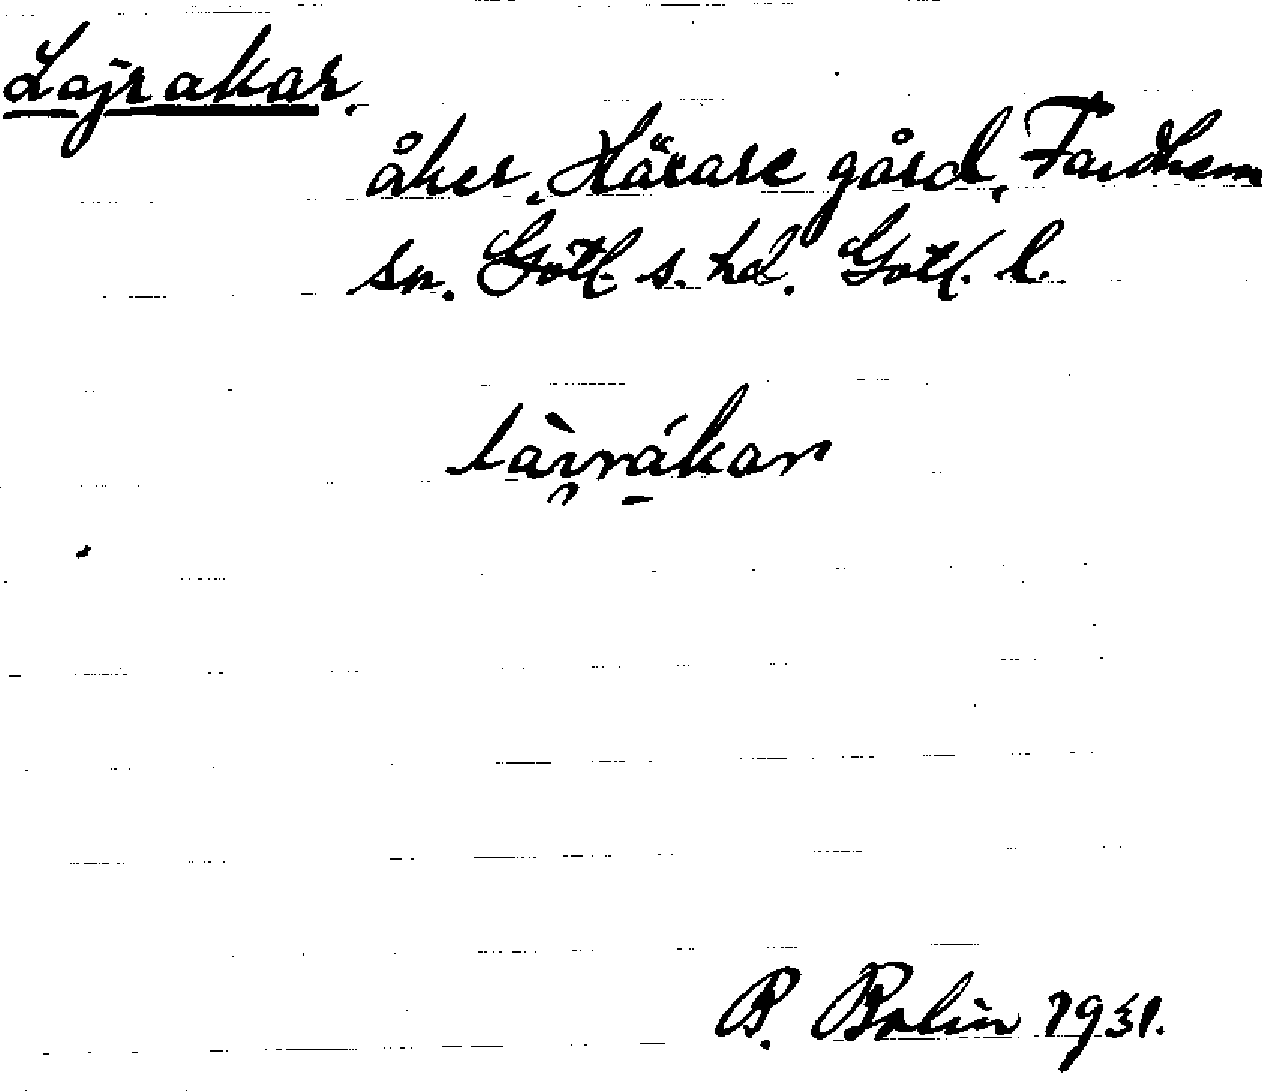 Lajrakar.
åker, Härare gård, Fardhem
sn. Gotl. s. hd. Gotl. l.
làirrákar
B. Bolin 1931.